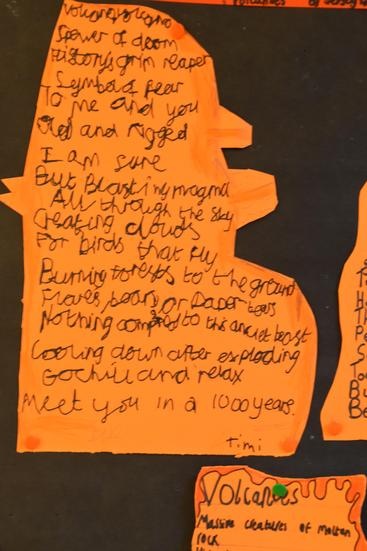 Volcano, volcano
Spewer of doom
History's grim reaper
Symbol of fear
To me and you
Old and rigged
I am sure
But Blasting magma
All through the sky
Creating clouds
For birds that fly
Burning forests to the ground
or Paper tears
Nothing compared to this beast
Cooling down after exploding
Go chill and relax
Meet you in a 1000 years.
Timi
Volcanoes
Massive creatures of molten
rock